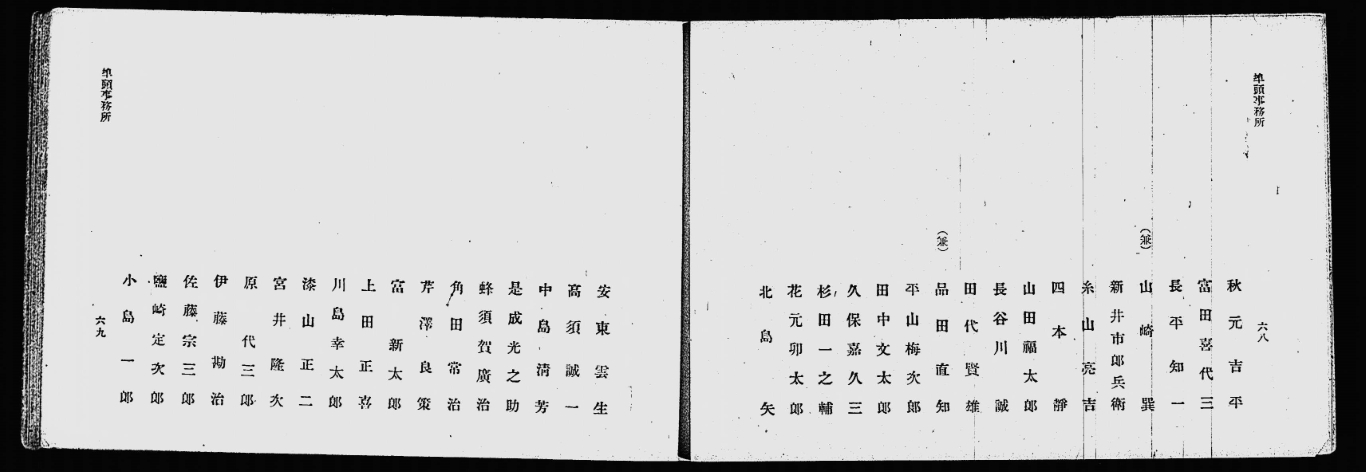 埠頭事務所
六八
秋元吉平
富田喜代三
長平知一
(兼) 山崎巽
新井市郎兵衛
糸山亮吉
四本靜
山田福太郎
長谷川誠
田代賢雄
(兼) 品田直知
平山梅次郎
田中文太郎
久保嘉久三
杉田一之輔
花元卯太郎
北島矢
安東雲生
高須誠一
中島淸芳
是成光之助
蜂須賀廣治
角田常治
芹澤良策
富新太郎
上田正喜
川島幸太郎
漆山正二
宮井隆次
原代三郎
伊藤勘治
佐藤宗三郎
鹽崎定次郎
小島一郎
埠頭事務所
六九